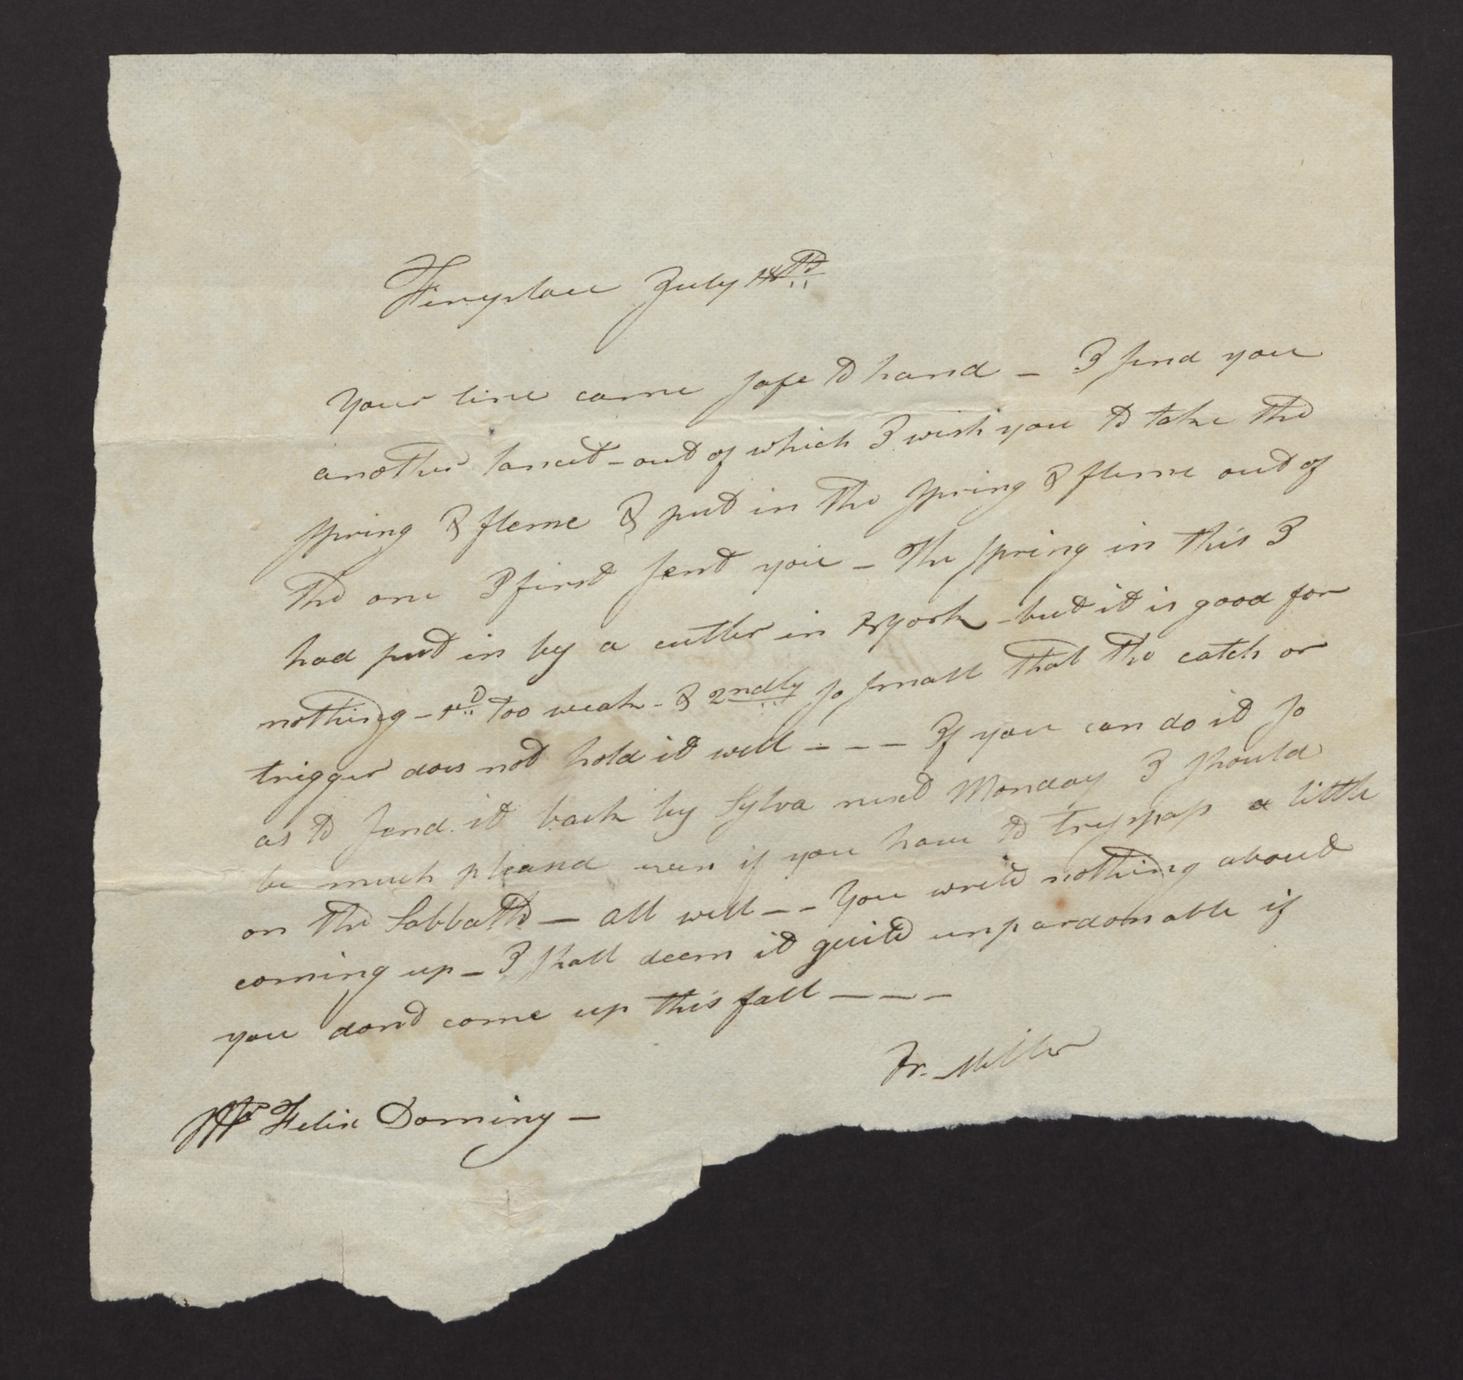 Fireplace July 14th
Your line came safe to hand – I send you
another lancet – out of which I wish you to take the
spring & fleme & put in the spring & fleme out of
the one I first sent you – The spring in this I
had put in by a cutler in NYork – but it is good for
nothing – 1st too weak – & 2ndly so small that the catch or
trigger does not hold it well – – – If you can do it so
as to send it back by Sylva next Monday I should
be much pleased even if you have to trespass a little
on the Sabbath – all well – – You write nothing about
coming up – I shall deem it quite unpardonable if
you dont come up this fall – – –
Mr. Felix Dominy –